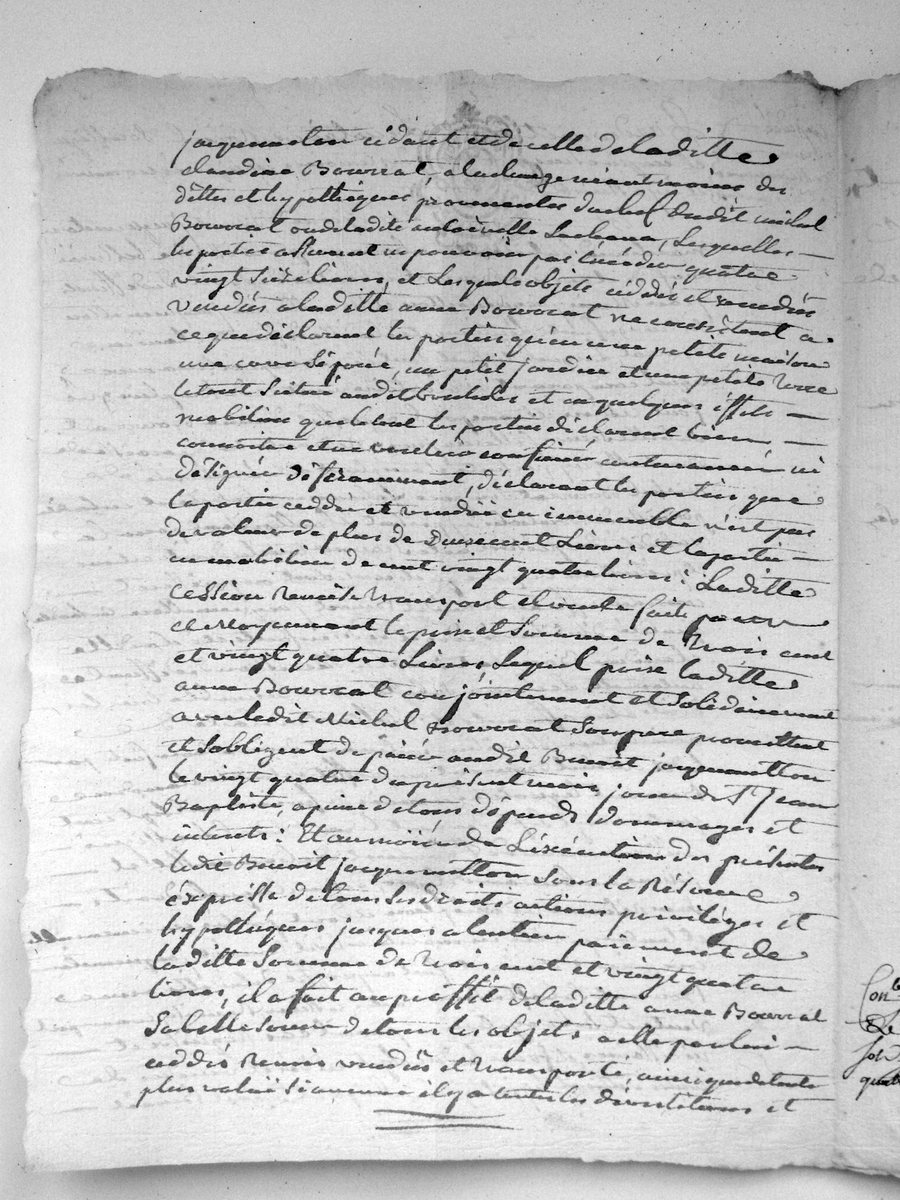 jacquemetton cédant et de celle de laditte
claudine Bourrat, a la charge néant moins des
dettes et hypothèques provenantes du chef dudit michel
Bovorat ou de ladite antoinette Lachana, Lesquelles
les parties assurent ne pouvoir pas excéder quatre
vingt seize livres, et Lesquels objets cédés et vendus
vendües a laditte anne Bovorat ne consistent a
ce que déclarent les parties qu'en une petite maison
une cave séparée, un petit jardin et une petite terre
le tout Scitué audit et en quelques effets
mobiliers que le tout les parties déclarent bien
connoitre et ne vouloir confiner autrement ni
désigner déferamment, déclarent les parties que
la partie ceddée et vendüe en immeuble n'est pas
de valeur de plus de Deux cent Livres et la partie
en mobilier de cent vingt quatre livres : Laditte
cession Remise transport et vente faite pour
et moyennant le prix et Somme de trois cent
et vingt quatre Livres Lequel prix laditte
anne Bovorat conjointement et Solidairement
avec ledit Michel Bovorat Son pere promettent
et s'obligent de paier audit Benoit jacquemetton
le vingt quatre du présent mois, jour de St Jean
Baptiste, a peine de tous dépends dommages et
interets : Et au moïén de L'éxécution des présentes
ledit Benoit jacquemetton sous la Réserve
éxpresse de tous ses droits actions privilèges et
hypothèques jusques a l'entier paiement de
laditte Somme de trois cent et vingt quatre
livres, il a fait au proffit de laditte anne Bourrat
Sa belle Soeur de tous les objets a elle par lui
ceddés Remis vendus et transporté, ainsi que de toute
plus value Si aucune il y a toutes les dévestitures et